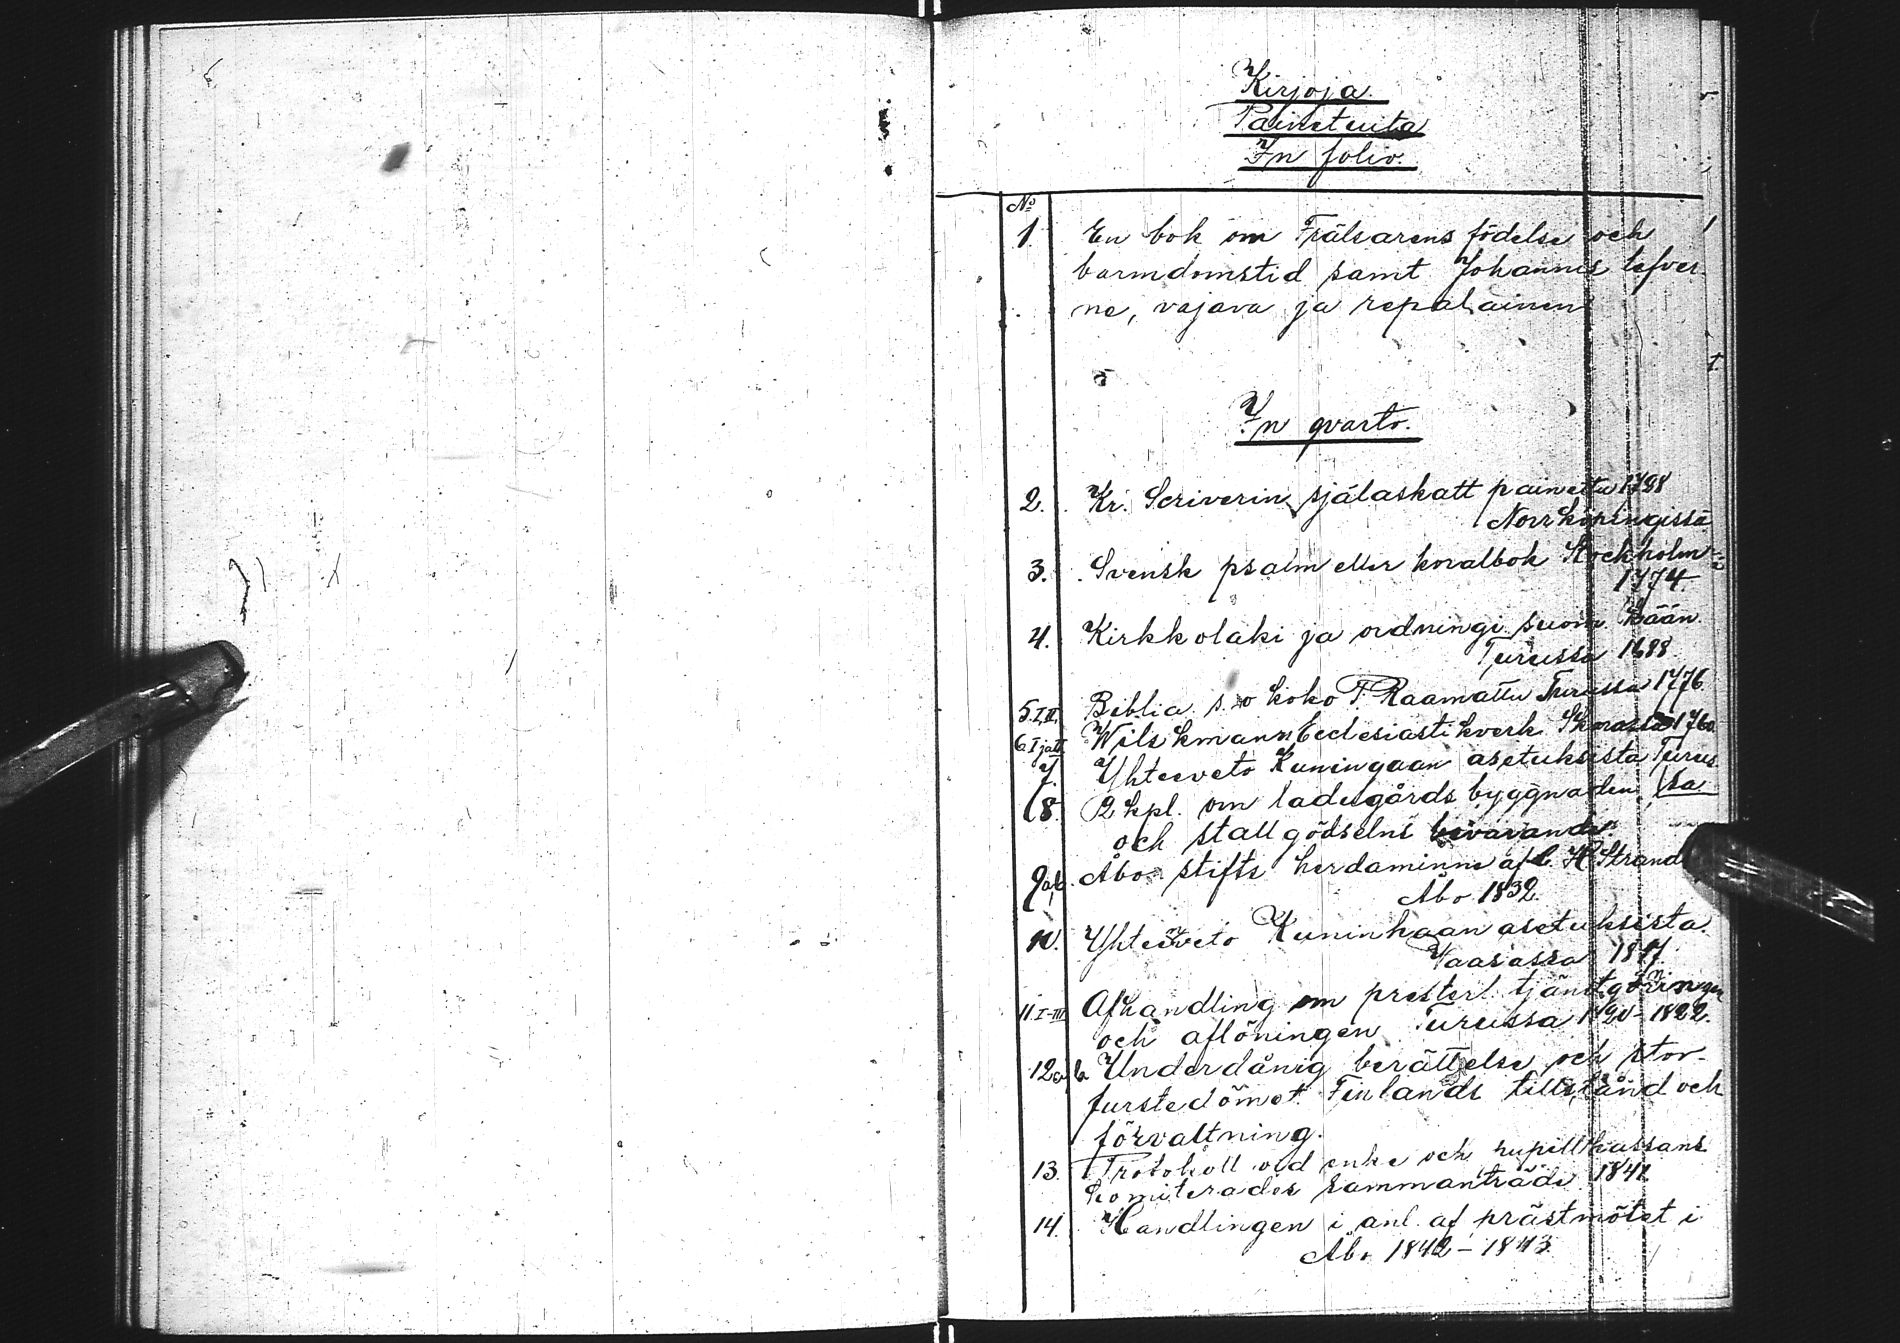 Kirjoja
Painetuita
In folio.
No
1 En bok om Frälsarens födelse och
barmdomstid samt Johannes lefver
ne, vajava ja repalainen
In qvarto.
2. Kr. Scriverin själaskatt painettu 1788
Norrköpingissä
3. Svensk psalm eller koralbok Stockholm
1774
4. Kirkkolaki ja ordningi suom. kään
Turussa 1688
5.I,II. Biblia s.o koko P. Raamattu Turussa 1776
6 I ja II Wilskmann Ecclesiastikverk 1760
7. Yhteeveto Kuningaan asetuksista Turus
8. 2 kpl. om ladugårds byggnaden sa
och stallgödselns bevarande.
9 a,b. Åbo stifts herdaminne af C. H. Strand
Åbo 1832
10. Yhteeveto Kuninhaan asetuksista
Vaasassa
11 I-III Afhandling om presterl. tjänstgörningen
och aflöningen Turussa 1820-1822.
12 a,b Underdånig berättelse och stor-
furstedömet Finlands tillstånd och
förvaltning.
13. Protokoll vid enke och pupillkassans
komiterades sammanträde 1841
14. Handlingen i anl. af prästmötet i
Åbo 1842-1843